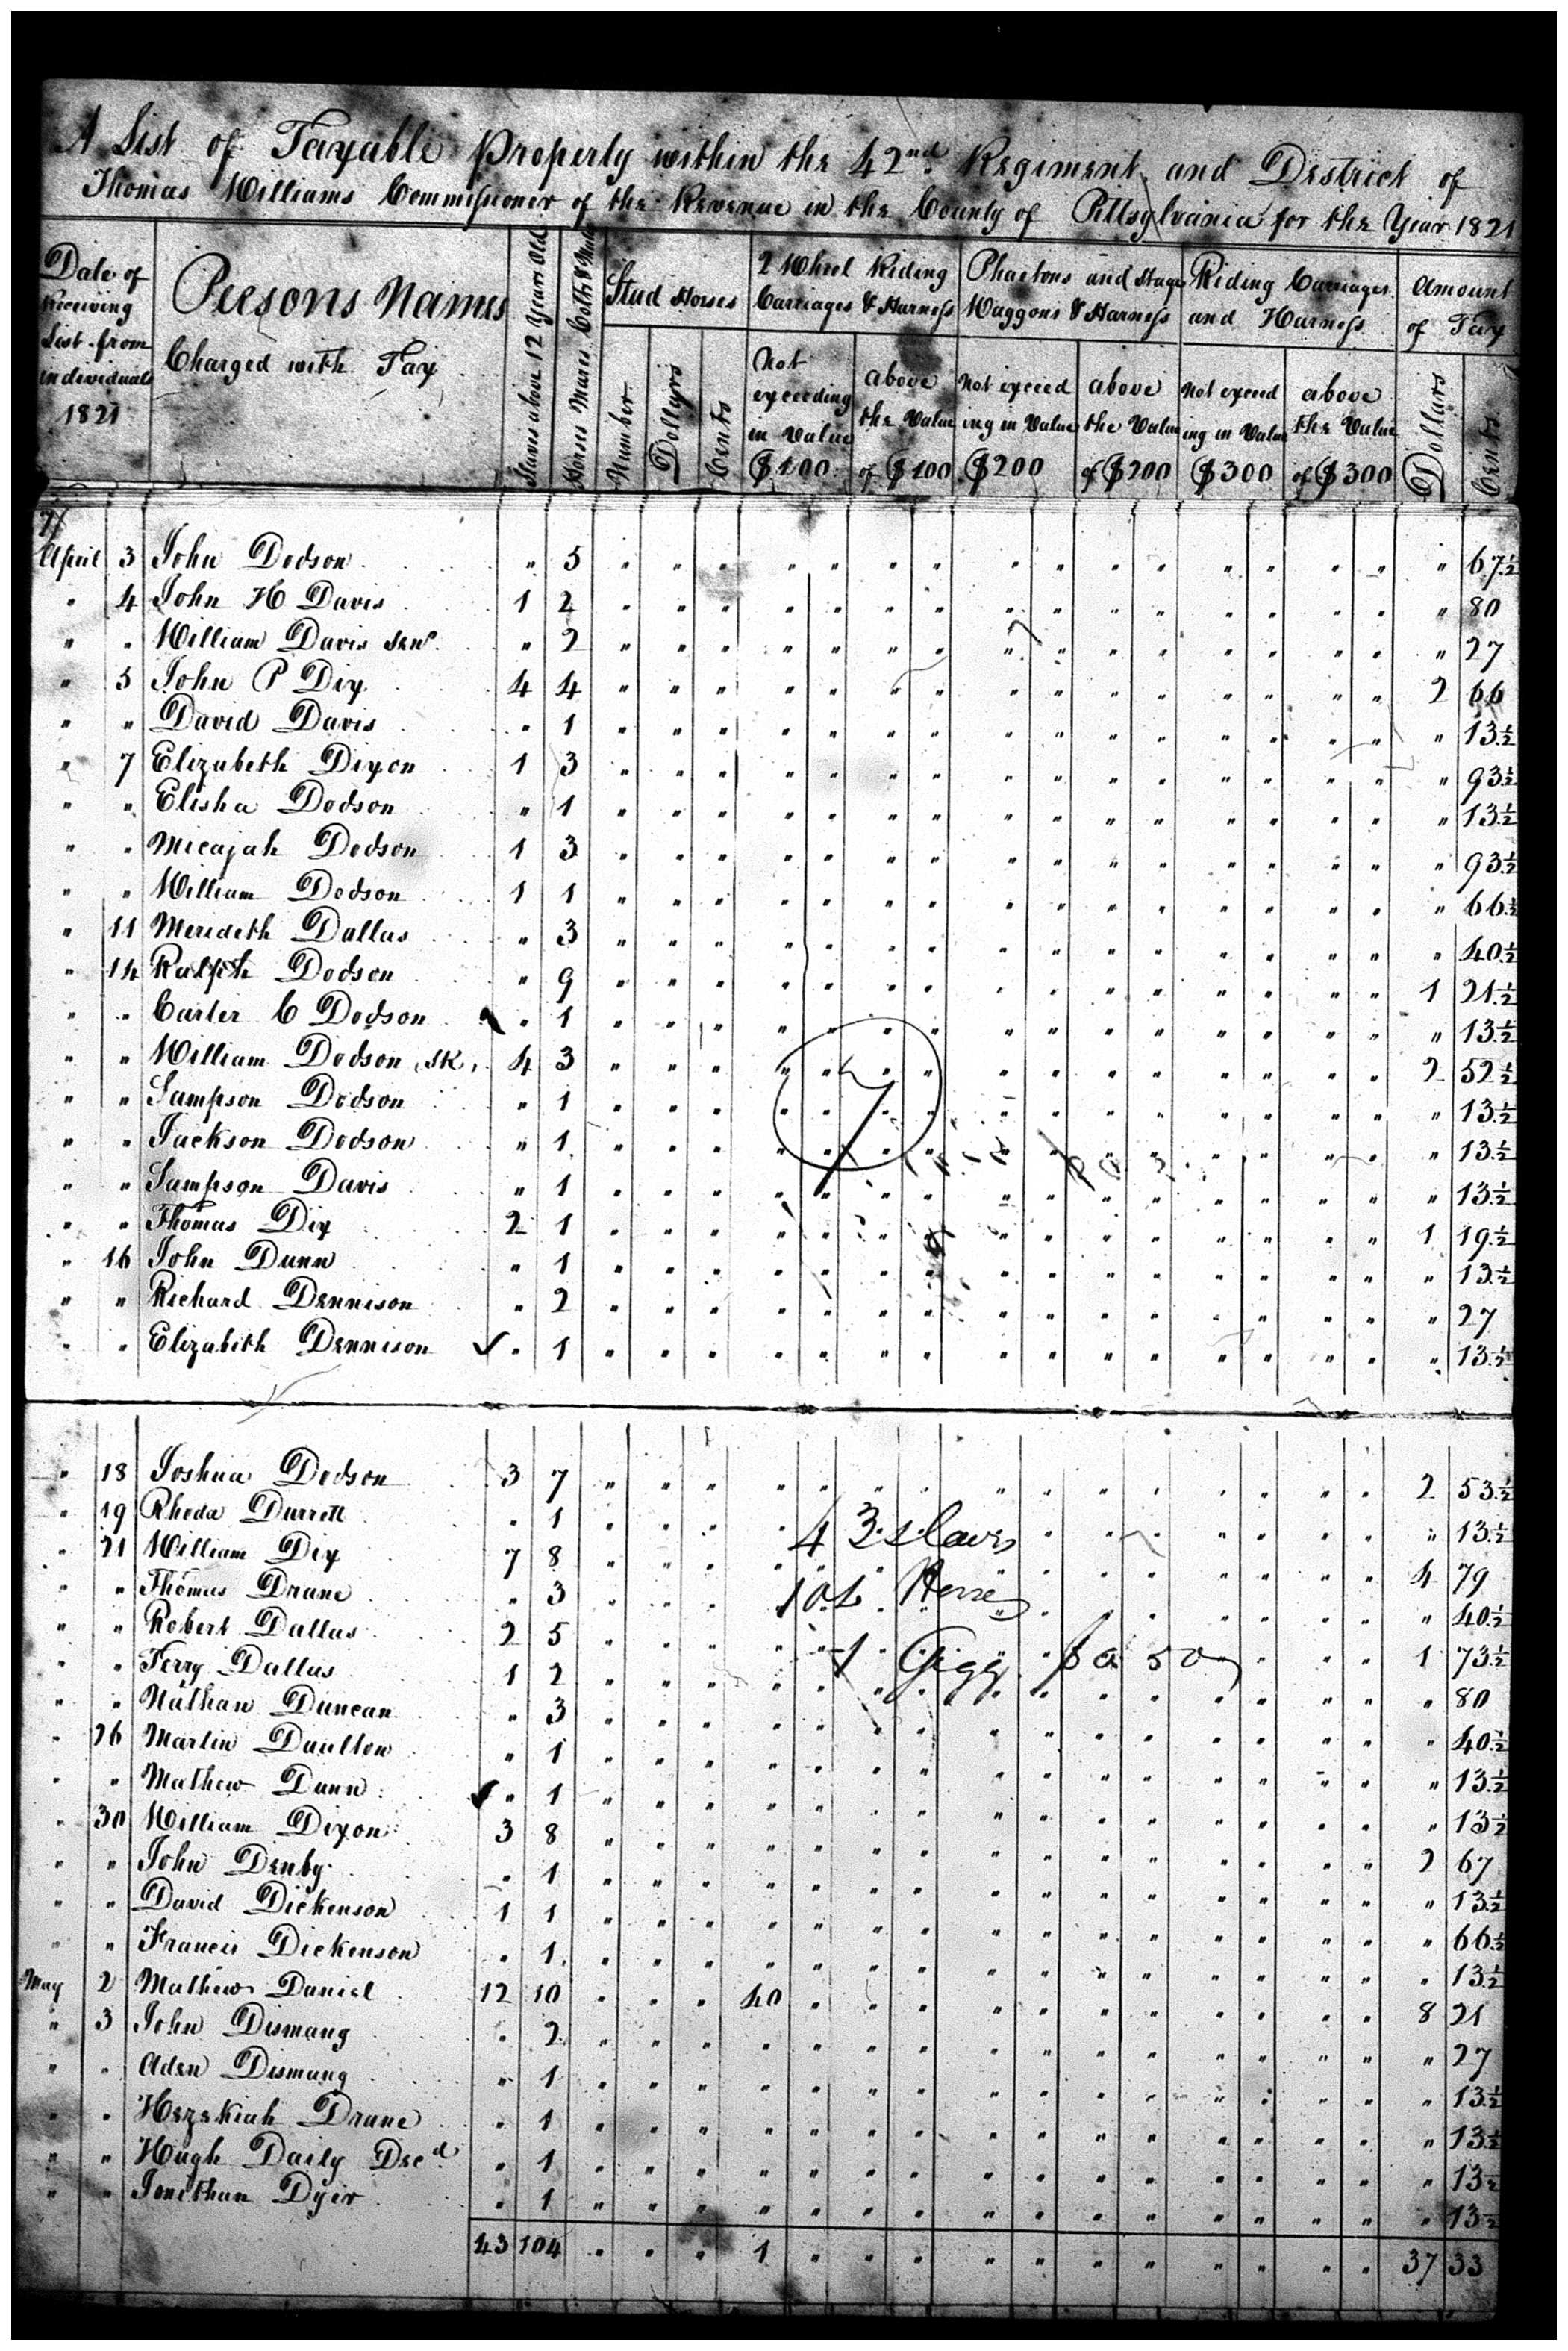 A List of Taxable Property within the 42nd Regiment and District of
Thomas Williams Commissioner of the Revenue in the County of Pittsylvania for the Year 1821
Date of Receiving List from individuals 1821
Persons Names Charged with Tax
Slaves above 12 Years Old
Horses Mares Colts & Mules
Stud Horses
Number Dollars Cents
2 Wheel Riding Carriages & Harness
Not exceeding in Value $100
above the Value of $100
Phaetons and Stage Waggons & Harness
Not exceeding in Value $200
above the Value of $200
Riding Carriages and Harness
Not exceeding in Value $300
above the Value of $300
Amount of Tax
Dollars Cents
April 3 John Dodson " 5 " " " " " " " " " " " " " " " " 67½
" 4 John H Davis 1 2 " " " " " " " " " " " " " " " " 80
" " William Davis Senr. " 2 " " " " " " " " " " " " " " " " 27
" 5 John P Dix 4 4 " " " " " " " " " " " " " " " 2 66
" " David Davis " 1 " " " " " " " " " " " " " " " " 13½
" 7 Elizabeth Dixon 1 3 " " " " " " " " " " " " " " " " 93½
" " Elisha Dodson " 1 " " " " " " " " " " " " " " " " 13½
" " Micajah Dodson 1 3 " " " " " " " " " " " " " " " " 93½
" " William Dodson 1 1 " " " " " " " " " " " " " " " " 66½
" 11 Merideth Dallas " 3 " " " " " " " " " " " " " " " " 40½
" 14 Ralph Dodson " 9 " " " " " " " " " " " " " " " 1 21½
" " Carter C Dodson " 1 " " " " " " " " " " " " " " " " 13½
" " William Dodson, SR, 4 3 " " " " " " " " " " " " " " " 2 52½
" " Sampson Dodson " 1 " " " " " " " " " " " " " " " " 13½
" " Jackson Dodson " 1 " " " " " " " " " " " " " " " " 13½
" " Sampson Davis " 1 " " " " " " " " " " " " " " " " 13½
" " Thomas Dix 2 1 " " " " " " " " " " " " " " " 1 19½
" 16 John Dunn " 1 " " " " " " " " " " " " " " " " 13½
" " Richard Dennison " 2 " " " " " " " " " " " " " " " " 27
" " Elizabeth Dennison ✓ " 1 " " " " " " " " " " " " " " " " 13½
7
" 18 Joshua Dodson 3 7 " " " " " " " " " " " " " " " 2 53½
" 19 Rhoda Durrett " 1 " " " " " " " " " " " " " " " " 13½
" 21 William Dix 7 8 " " " " " " " " " " " " " " " 4 79
" " Thomas Drane " 3 " " " " " " " " " " " " " " " " 40½
" " Robert Dallas 2 5 " " " " " " " " " " " " " " " 1 73½
" " Terry Dallas 1 2 " " " " " " " " " " " " " " " " 80
" " Nathan Duncan " 3 " " " " " " " " " " " " " " " " 40½
" 26 Martin Daulton " 1 " " " " " " " " " " " " " " " " 13½
" " Mathew Dunn ✓ " 1 " " " " " " " " " " " " " " " " 13½
" 30 William Dixon 3 8 " " " " " " " " " " " " " " " 2 67
" " John Denby " 1 " " " " " " " " " " " " " " " " 13½
" " David Dickenson 1 1 " " " " " " " " " " " " " " " " 66½
" " Francis Dickenson " 1 " " " " " " " " " " " " " " " " 13½
May 2 Mathew Daniel 12 10 " " " 40 " " " " " " " " " " " 8 21
" 3 John Dismang " 2 " " " " " " " " " " " " " " " " 27
" " Aden Dismang " 1 " " " " " " " " " " " " " " " " 13½
" " Hezekiah Drane " 1 " " " " " " " " " " " " " " " " 13½
" " Hugh Daily Decd " 1 " " " " " " " " " " " " " " " " 13½
" " Jonathan Dyer " 1 " " " " " " " " " " " " " " " " 13½
43 104 " " " 1 " " " " " " " " " " " 37 33
4 3 slaves
10 Horses
1 Gigg 50